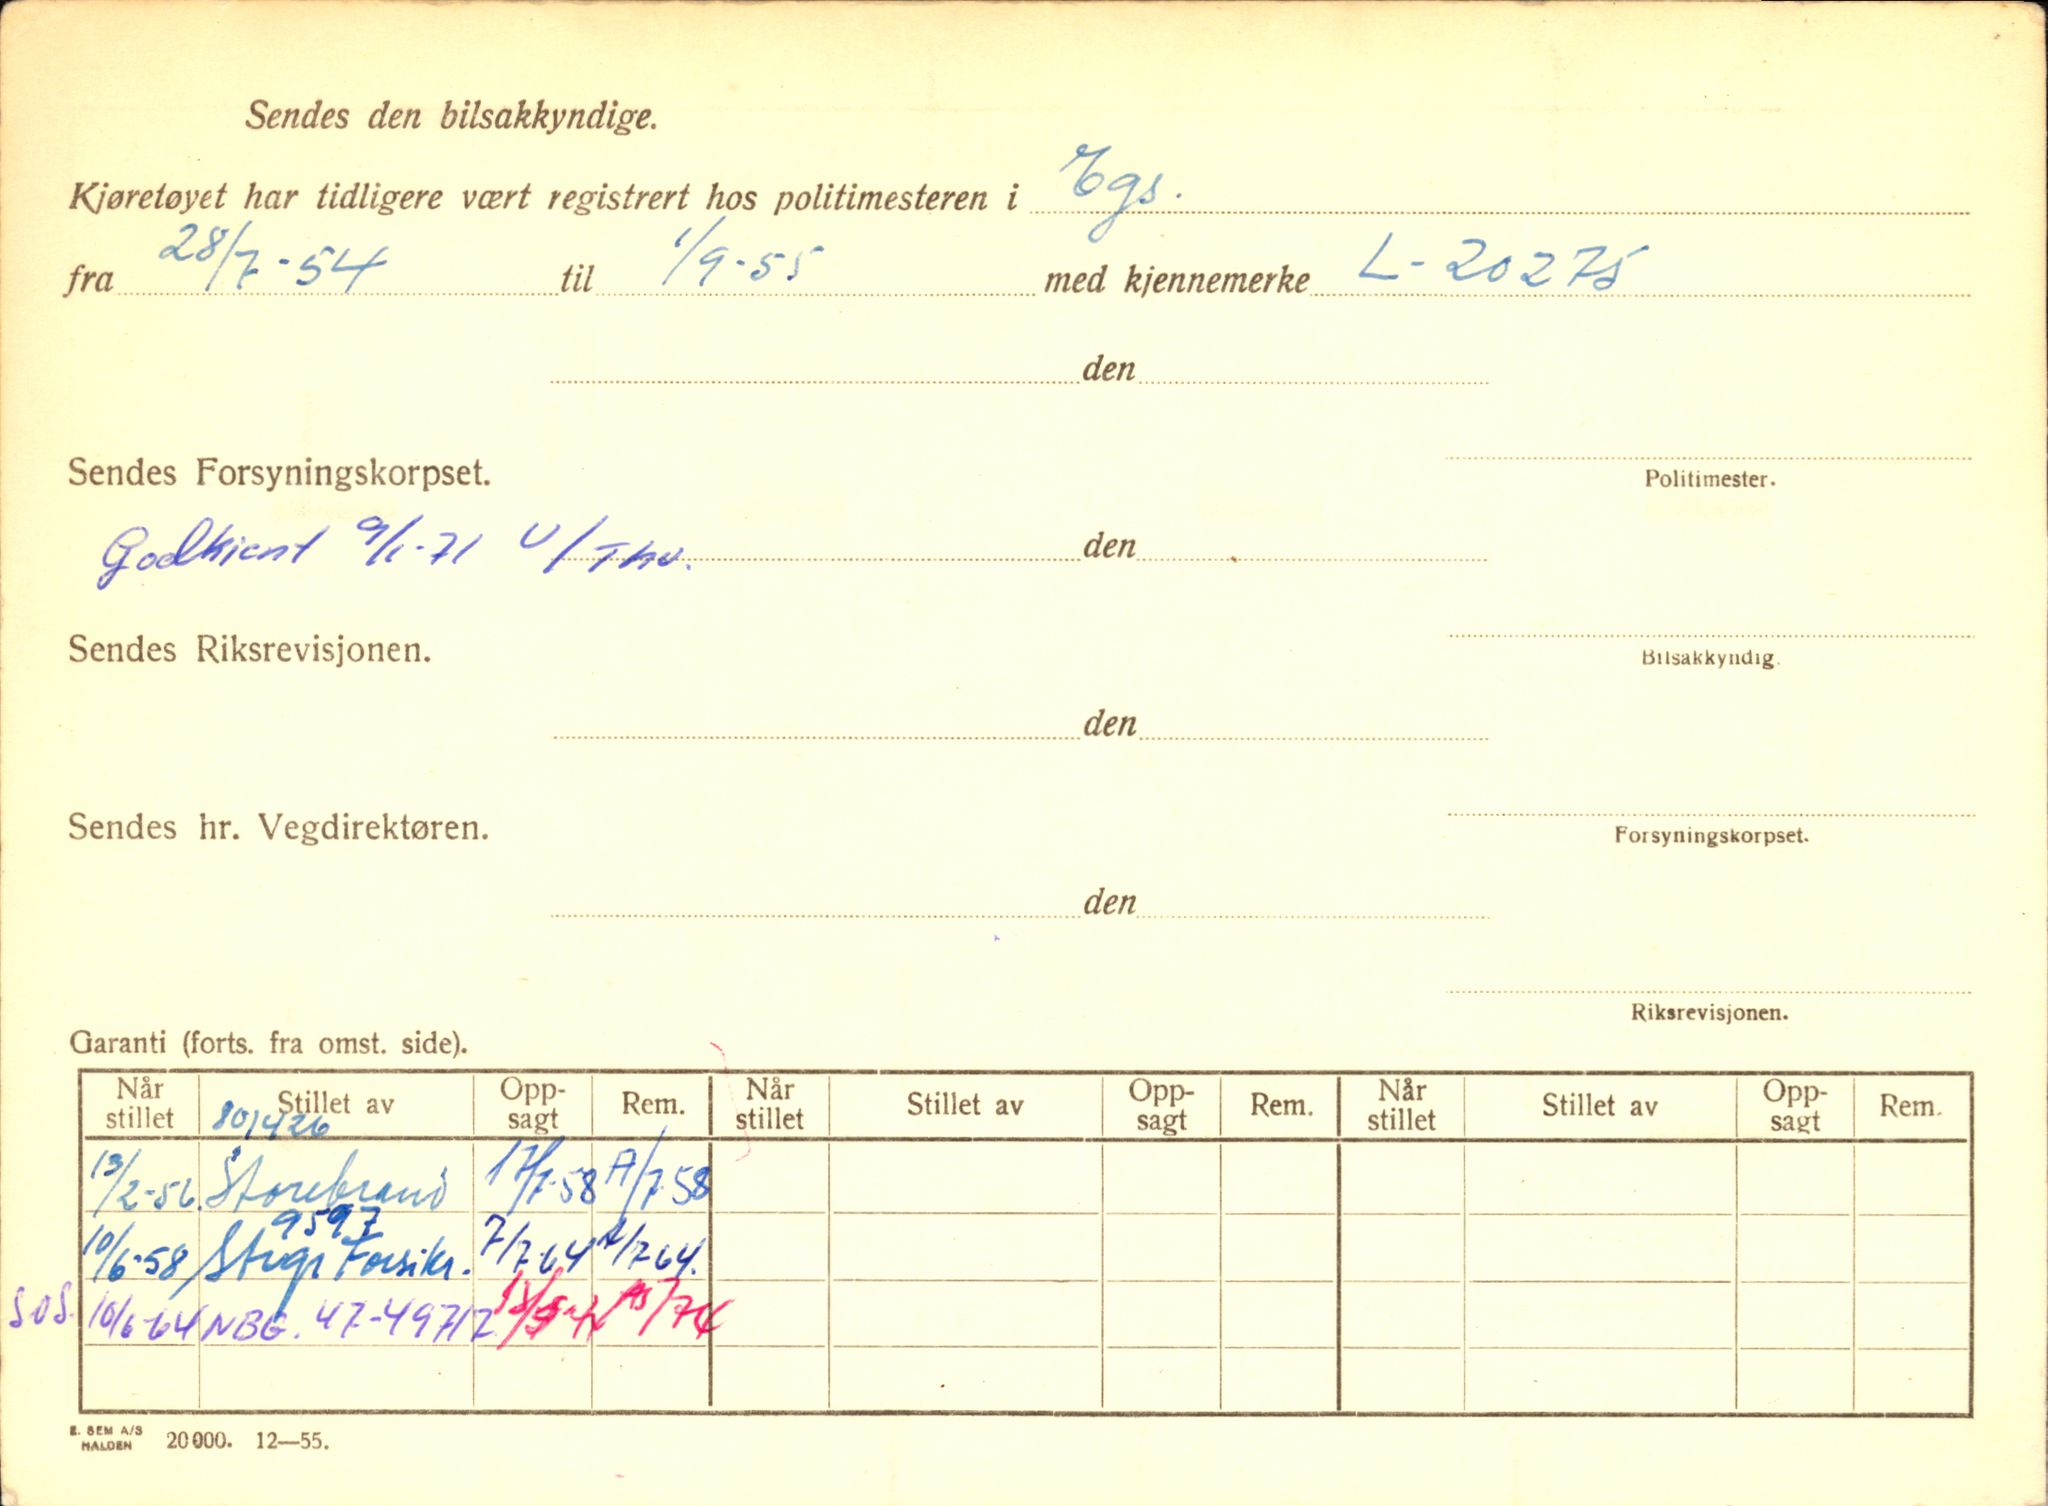 Sendes den bilsakkyndige.
Kjøretøyet har tidligere vært registrert hos politimesteren i Egs.
fra 28/7-54 til 1/9-55 med kjennemerke L-20275
den
Sendes Forsyningskorpset.
Politimester.
Godkjent 9/1-71 den
Sendes Riksrevisjonen.
Bilsakkyndig.
den
Sendes hr. Vegdirektøren.
Forsyningskorpset.
den
Riksrevisjonen.
Garanti (forts. fra omst. side).
Når stillet Stillet av Opp- sagt Rem. Når stillet Stillet av Opp- sagt Rem. Når stillet Stillet av Opp- sagt Rem.
801426
13/2-56 Storebrand 17/7-58 A/7-58
9597
10/6-58 Forsikr. 7/7-64 A/7-64.
SOS. 10/6-64 NBG. 47-49717
E. SEM A/S
HALDEN 20000. 12—55.